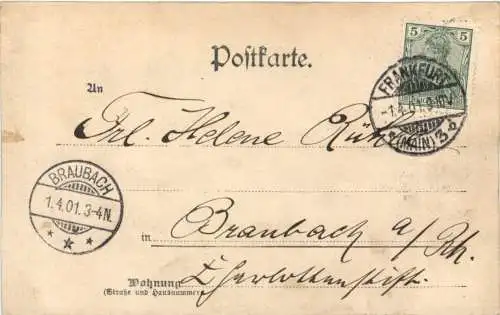 5 5
Postkarte.
FRANKFURT
-1.4.01.
* (MAIN) 3 b
An
Frl. Helene
BRAUBACH
1.4.01.3-4N.
in Braubach a/Rh.
Wohnung Charlottenstift.
(Straße und Hausnummer)